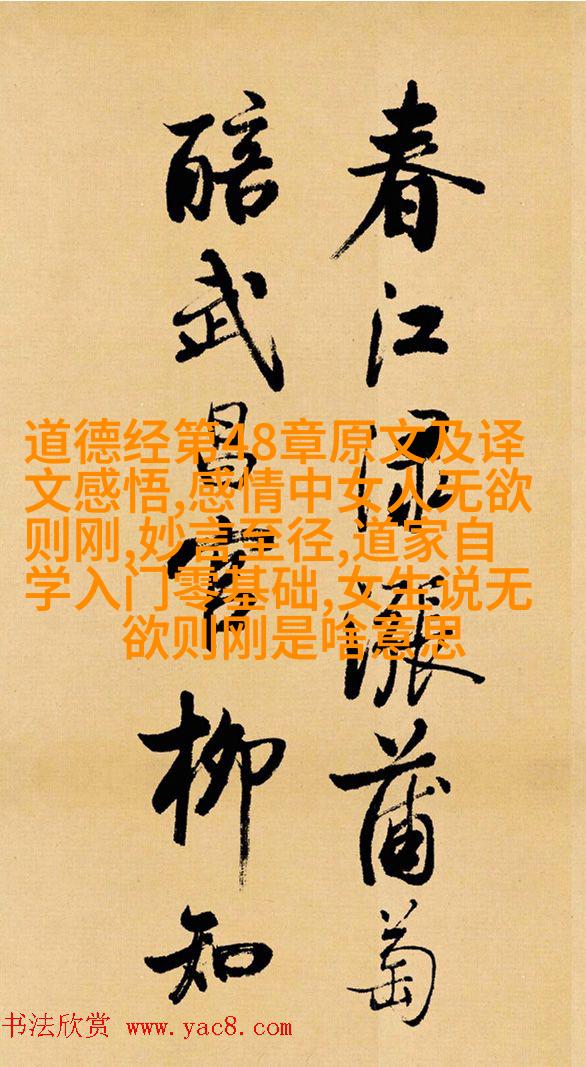 春江渌涨蒲萄
醅武昌官柳知
道德经第48章原文及译
文感悟,感情中女人无欲
则刚,妙言至径,道家自
学入门零基础,女生说无
欲则刚是啥意思
书法欣赏 www.yac8.com